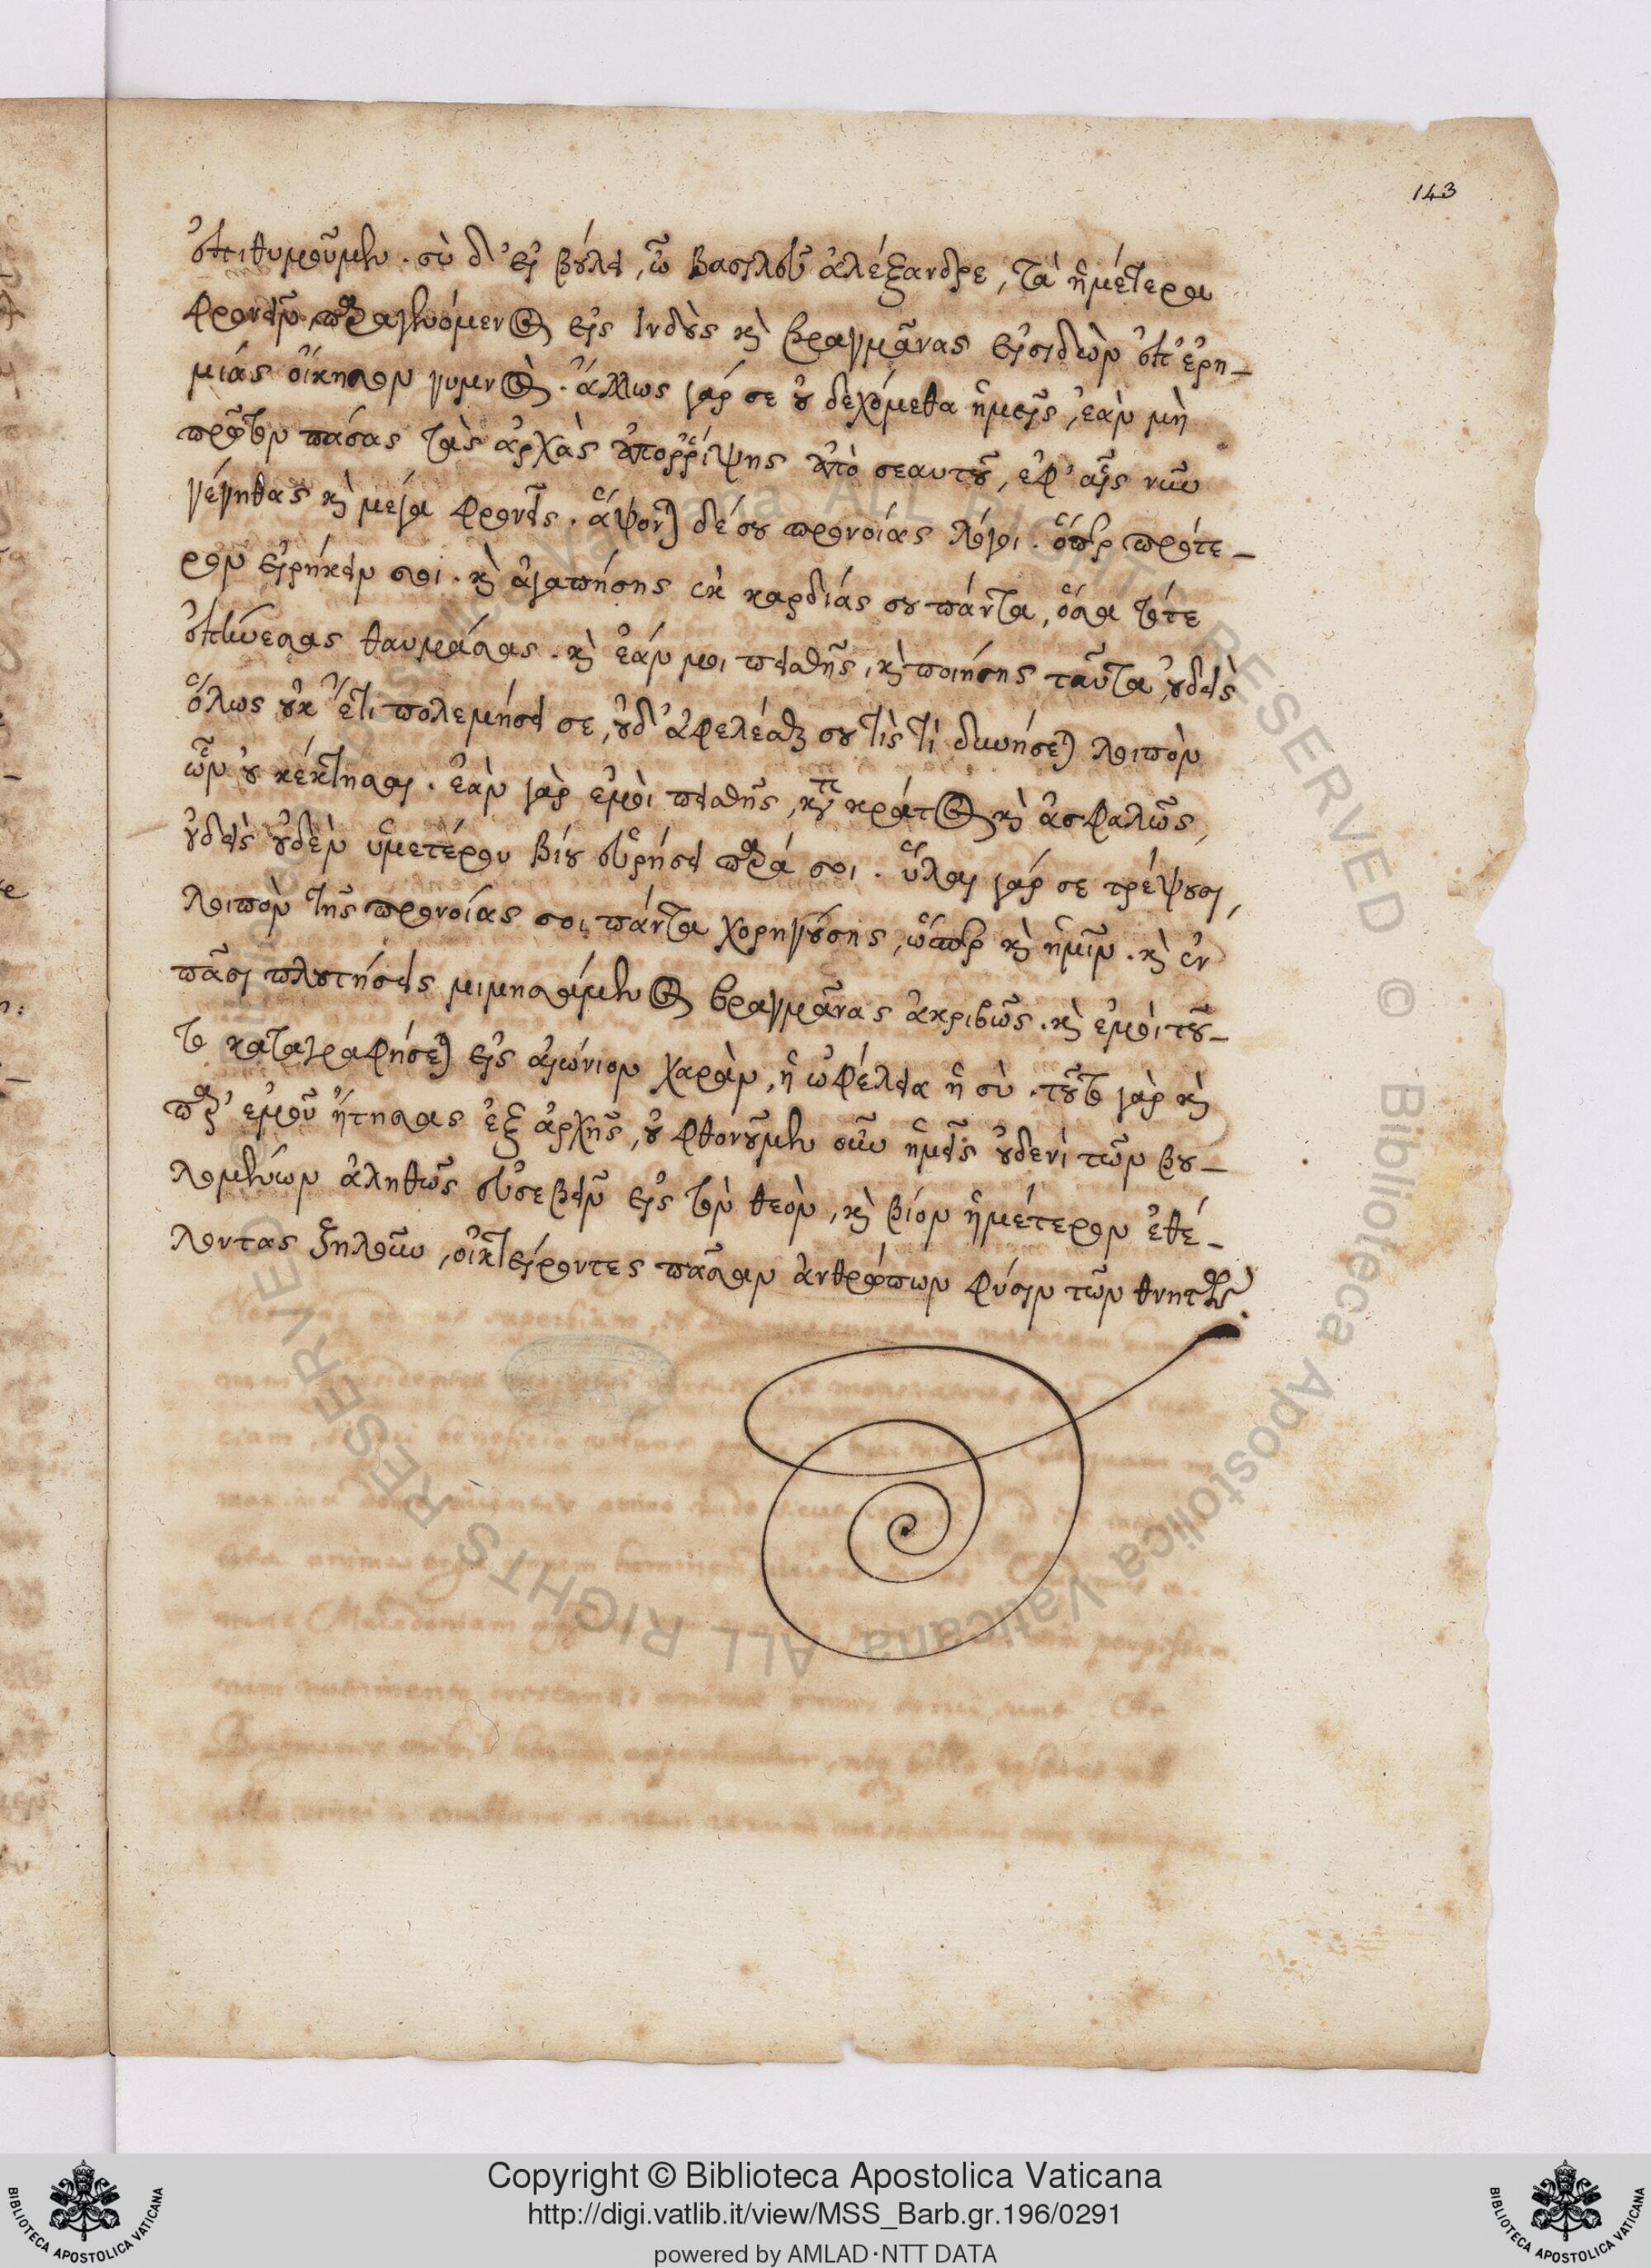 143
ἐπιθυμοῦμεν. σὺ δ' εἰ βούλει, ὦ βασιλεῦ ἀλέξανδρε, τὰ ἡμέτερα
φρονεῖν, παραγενόμενος εἰς Ἰνδοὺς καὶ βραγμᾶνας εἰσιδεῖν ἐπ' ἐρη-
μίας οἴκησον γυμνὸς. ἄλλως γάρ σε οὐ δεχόμεθα ἡμεῖς, ἐὰν μὴ
πρῶτον πάσας τὰς ἀρχὰς ἀπορρίψης ἀπὸ σεαυτοῦ, ἐφ' αἷς νῦν
γέγηθας καὶ μέγα φρονεῖς. ἅψονται δέ σου προνοίας λόγοι. ὅπερ πρότε-
ρον εἰρήκειν σοι. καὶ ἀγαπήσης ἐκ καρδίας σου πάντα, ὅσα τότε
ἐπήνεσας θαυμάσας. καὶ ἐάν μοι πεισθῆς, καὶ ποιήσης ταῦτα, οὐδεὶς
ὅλως οὐκ ἔτι πολεμήσει σε, οὐδ' ἀφελέσθαι σου τὶς τὶ δυνήσεται λοιπὸν
ὧν οὐ κέκτησαι. ἐὰν γὰρ ἐμοὶ πεισθῆς, κατὰ κράτος καὶ ἀσφαλῶς,
οὐδεὶς οὐδὲν ὑμετέρου βίου εὑρήσει παρά σοι. ὗλαι γάρ σε τρέψουσι,
λοιπὸν τῆς προνοίας σοι πάντα χορηγούσης, ὥσπερ καὶ ἡμῖν. καὶ ἐν
πᾶσι πλουτήσεις μιμησάμενος βραγμᾶνας ἀκριβῶς. καὶ ἐμοὶ τοῦ-
το καταγραφήσεται εἰς αἰώνιον χαρὰν, ἢ ὠφέλεια ἢ σὺ. τοῦτο γὰρ καὶ
παρ' ἐμοῦ ᾔτησας ἐξ ἀρχῆς, οὐ φθονοῦμεν οὖν ἡμεῖς οὐδενὶ τῶν βου-
λομένων ἀληθῶς εὐσεβεῖν εἰς τὸν θεὸν, καὶ βίον ἡμέτερον ἐθέ-
λοντας ζηλοῦν, οἰκτείροντες πᾶσαν ἀνθρώπων φύσιν τῶν θνητῶν.
Copyright © Biblioteca Apostolica Vaticana
http://digi.vatlib.it/view/MSS_Barb.gr.196/0291
powered by AMLAD·NTT DATA
BIBLIOTECA APOSTOLICA VATICANA
BIBLIOTECA APOSTOLICA VATICANA